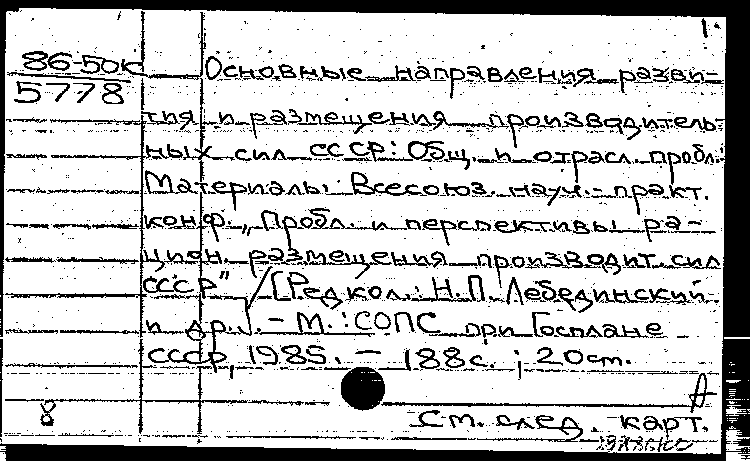 1.
86-50к Основные направления разви-
5778
тия и размещения производитель-
ных сил СССР: Общ. и отрасл. пробл.:
Материалы Всесоюз. науч.-практ.
конф. „Пробл. и перспективы ра-
цион. размещения производит. сил
СССР" / [Редкол.: Н.П. Лебединский
и др.]. - М.: СОПС при Госплане
СССР, 1985. - 188с. ; 20 см.
А
8 См. след. карт.